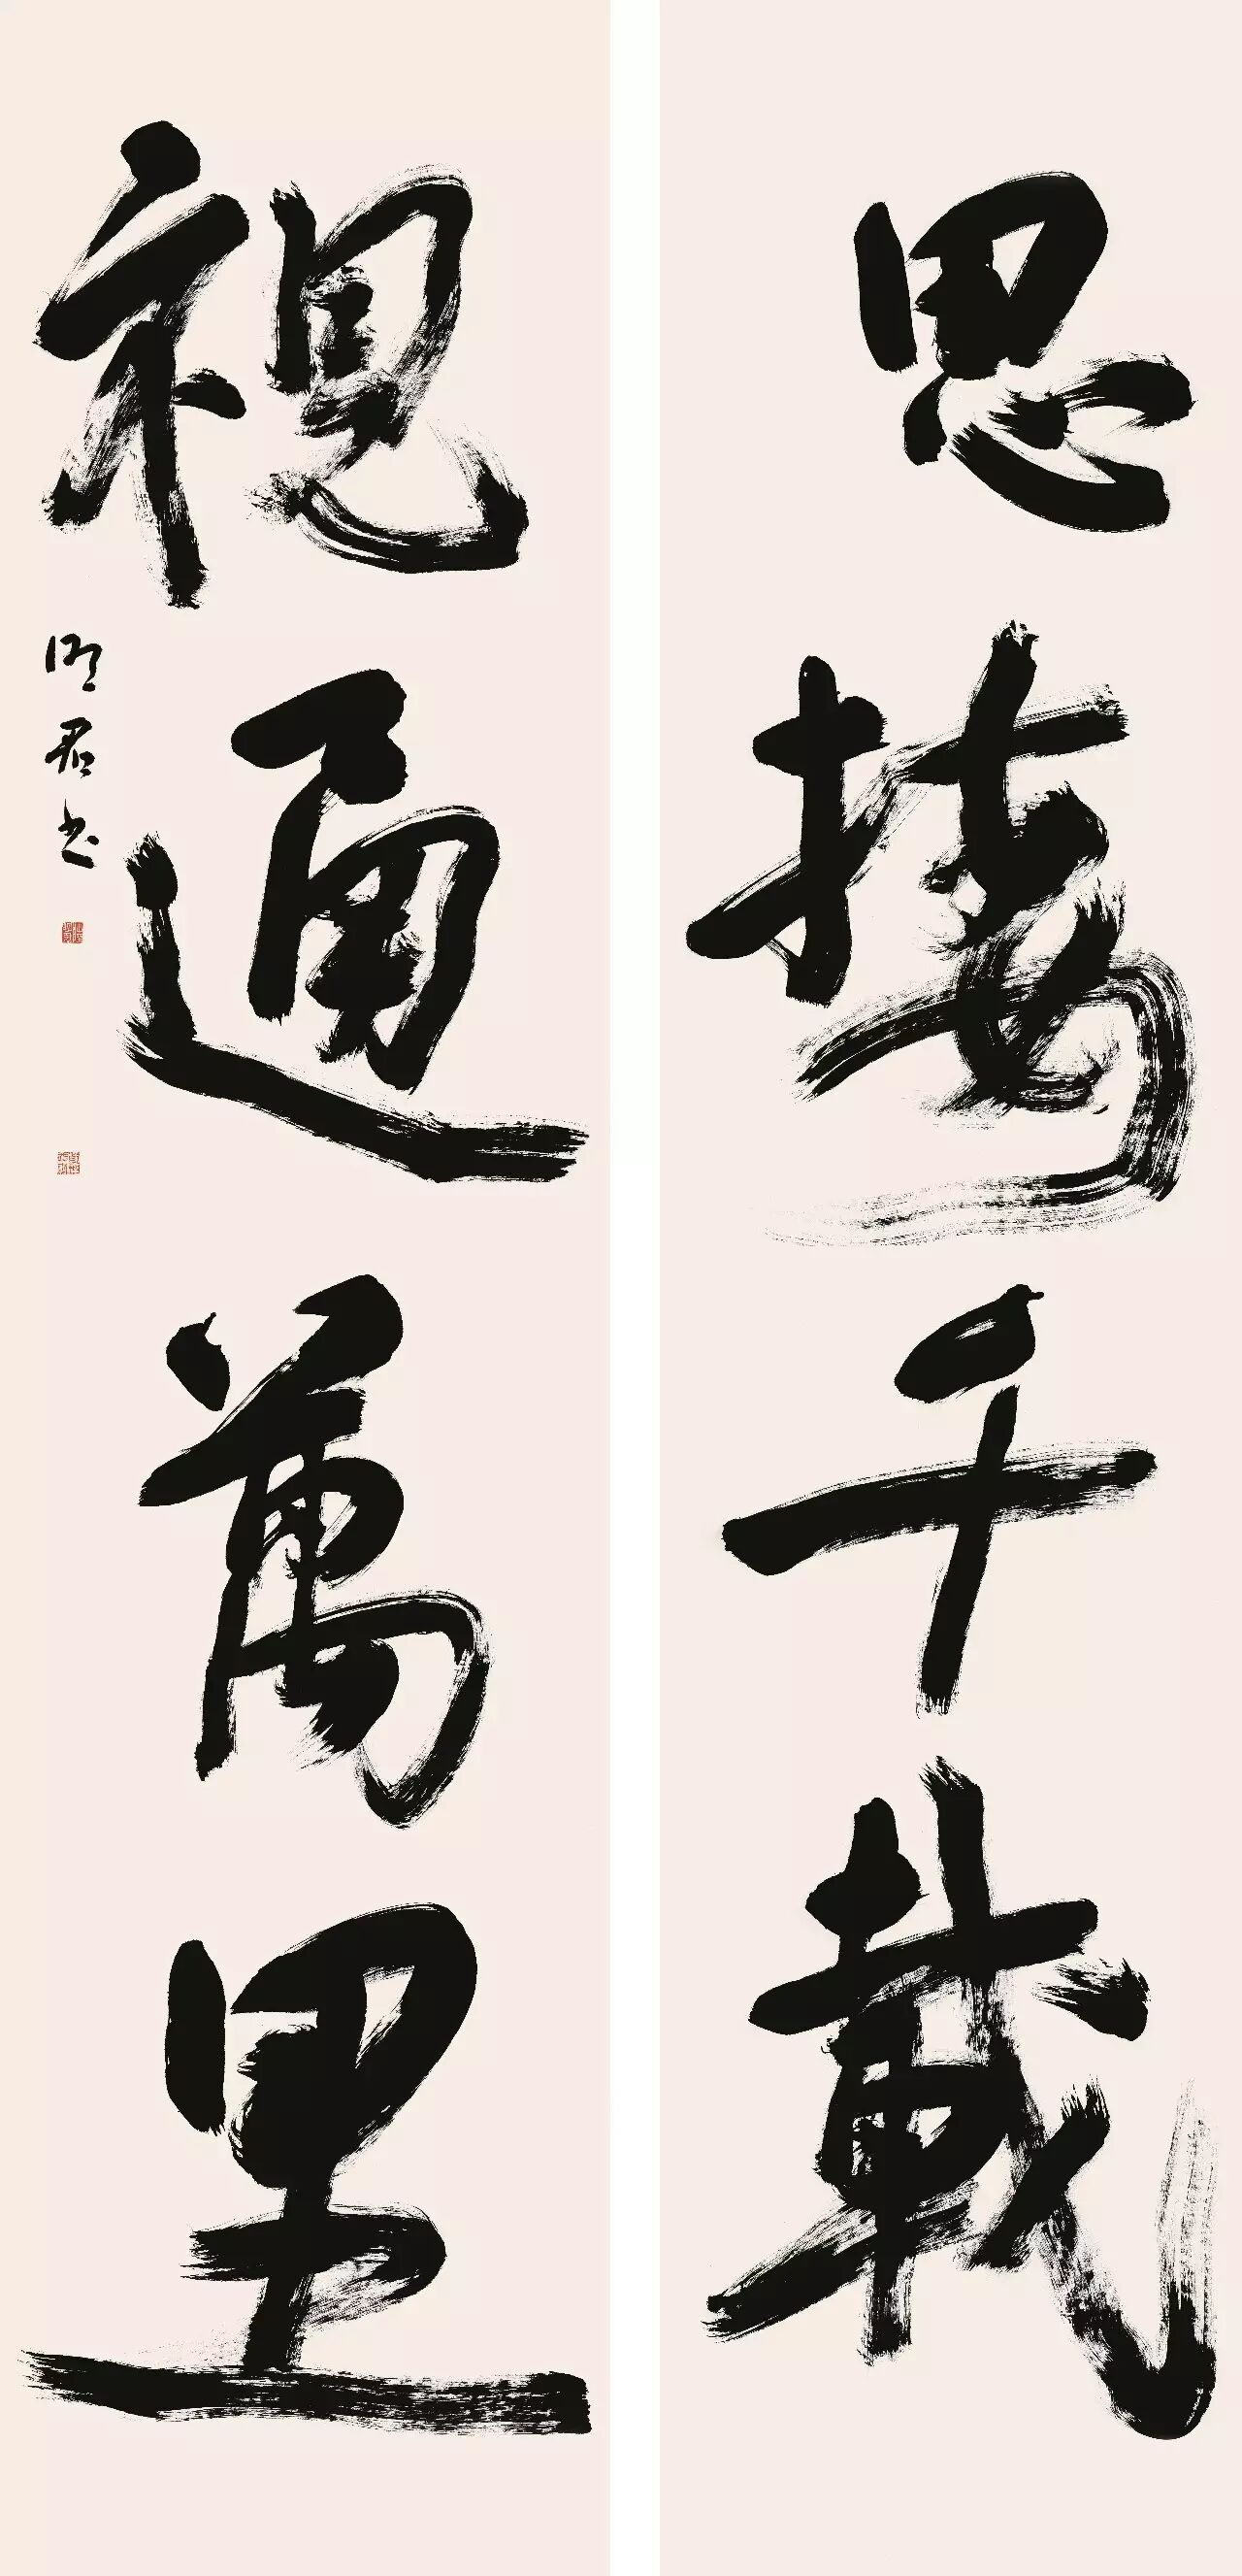 思接千載
視通萬里
明君书